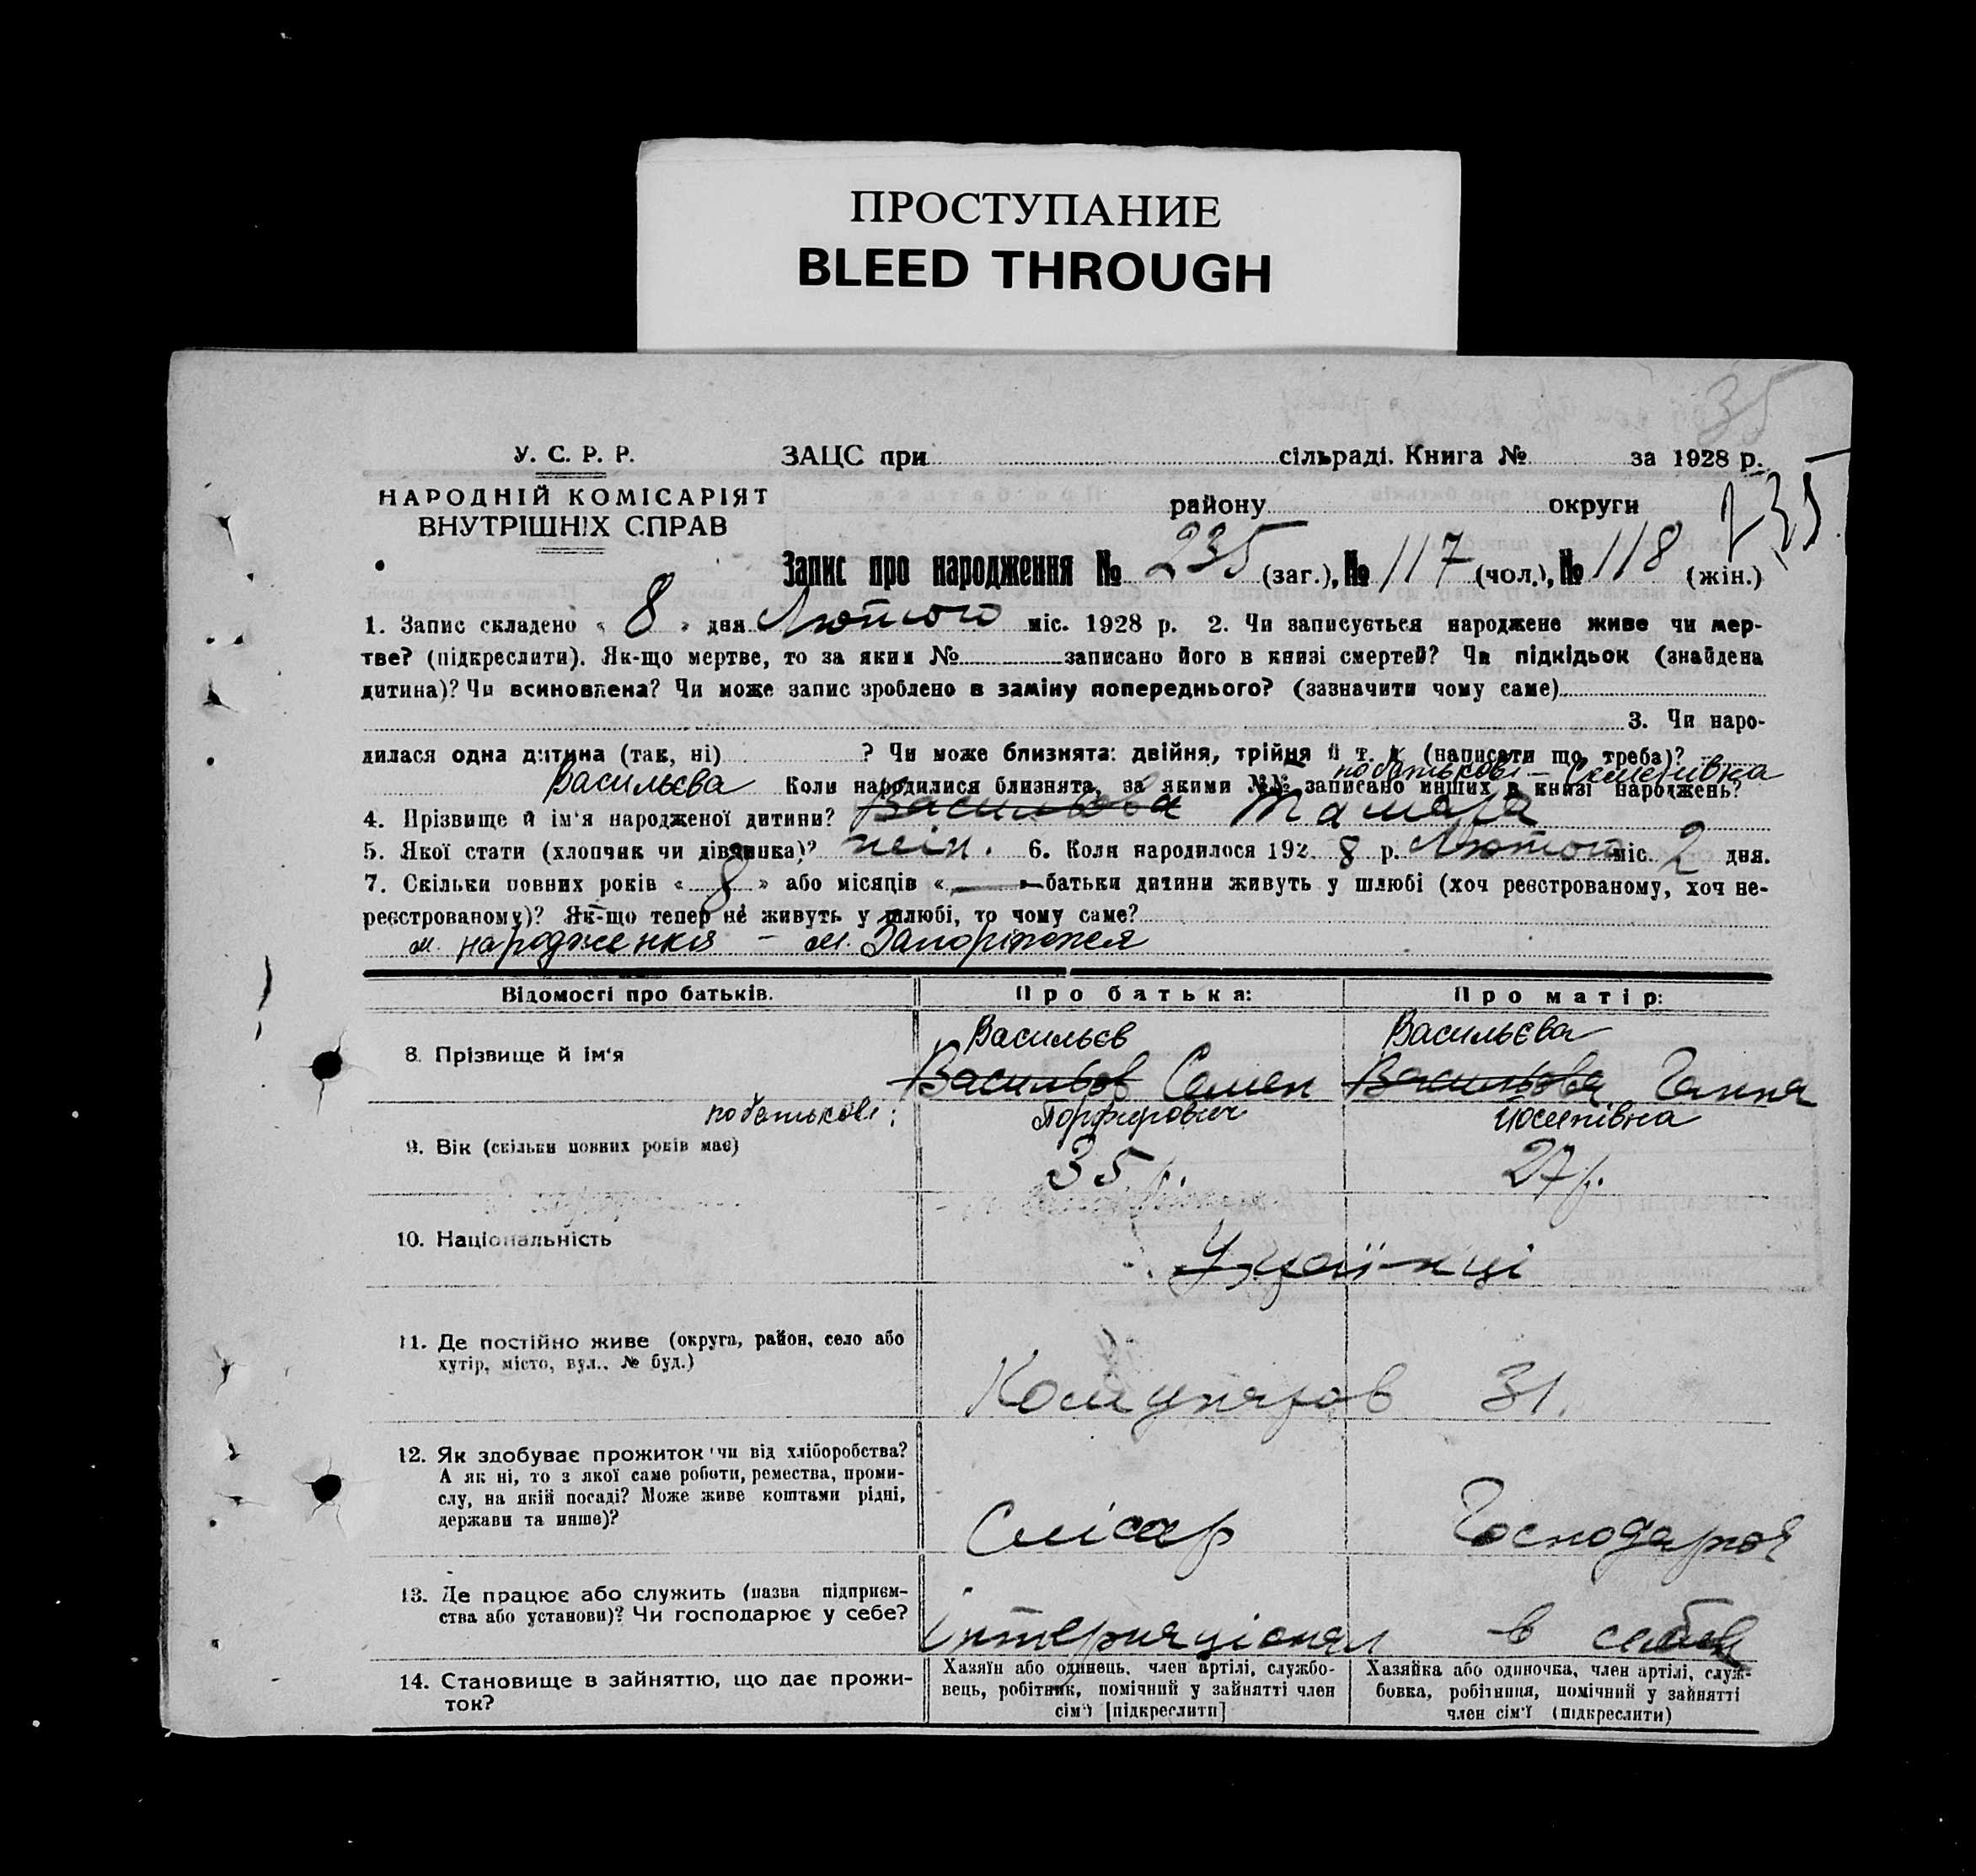 ПРОСТУПАНИЕ
BLEED THROUGH
35
У. С. Р. Р.
НАРОДНІЙ КОМІСАРІЯТ
ВНУТРІШНІХ СПРАВ
ЗАЦС при сільраді. Книга № за 1928 р.
району округи
235
Запис про народження № 235 (заг.), № 117 (чол.), № 118 (жін.)
1. Запис складено « 8 » дня Лютого міс. 1928 р. 2. Чи записується народжене живе чи мер-
тве? (підкреслити). Як-що мертве, то за яким № записано його в книзі смертей? Чи підкідьок (знайдена
дитина)? Чи всиновлена? Чи може запис зроблено в заміну попереднього? (зазначити чому саме)
3. Чи наро-
дилася одна дитина (так, ні) ? Чи може близнята: двійня, трійня й т. д. (написати що треба)?
побатькові – Семенівна
Васильєва Коли народилися близнята, за якими №№ записано инших в книзі народжень?
4. Прізвище й ім'я народженої дитини? Васильова Тамара
5. Якої стати (хлопчик чи дівчинка)? жін. 6. Коли народилося 192 8 р. Лютого міс. 2 дня.
7. Скільки повних років « 8 » або місяців « — » батьки дитини живуть у шлюбі (хоч реєстрованому, хоч не-
реєстрованому)? Як-що тепер не живуть у шлюбі, то чому саме?
м. народження – м. Запоріжжя
Відомості про батьків. Про батька: Про матір:
Васильєв Васильєва
8. Прізвище й ім'я Васильов Семен Васильова Ганна
побатькові: Порфирович Йосипівна
9. Вік (скільки повних років має) 35 р. 27 р.
10. Національність Українці
11. Де постійно живе (округа, район, село або
хутір, місто, вул., № буд.)
Комунаров 31.
12. Як здобуває прожиток чи від хліборобства?
А як ні, то з якої саме роботи, ремества, проми-
слу, на якій посаді? Може живе коштами рідні,
держави та инше)?
Слісар Господарює
13. Де працює або служить (назва підприєм-
ства або установи)? Чи господарює у себе?
Інтернаціонал в себе
14. Становище в зайняттю, що дає прожи-
ток?
Хазяїн або одинець, член артілі, службо-
вець, робітник, помічний у зайнятті член
сім'ї [підкреслити]
Хазяйка або одиночка, член артілі, служ-
бовка, робітниця, помічний у зайнятті
член сім'ї (підкреслити)